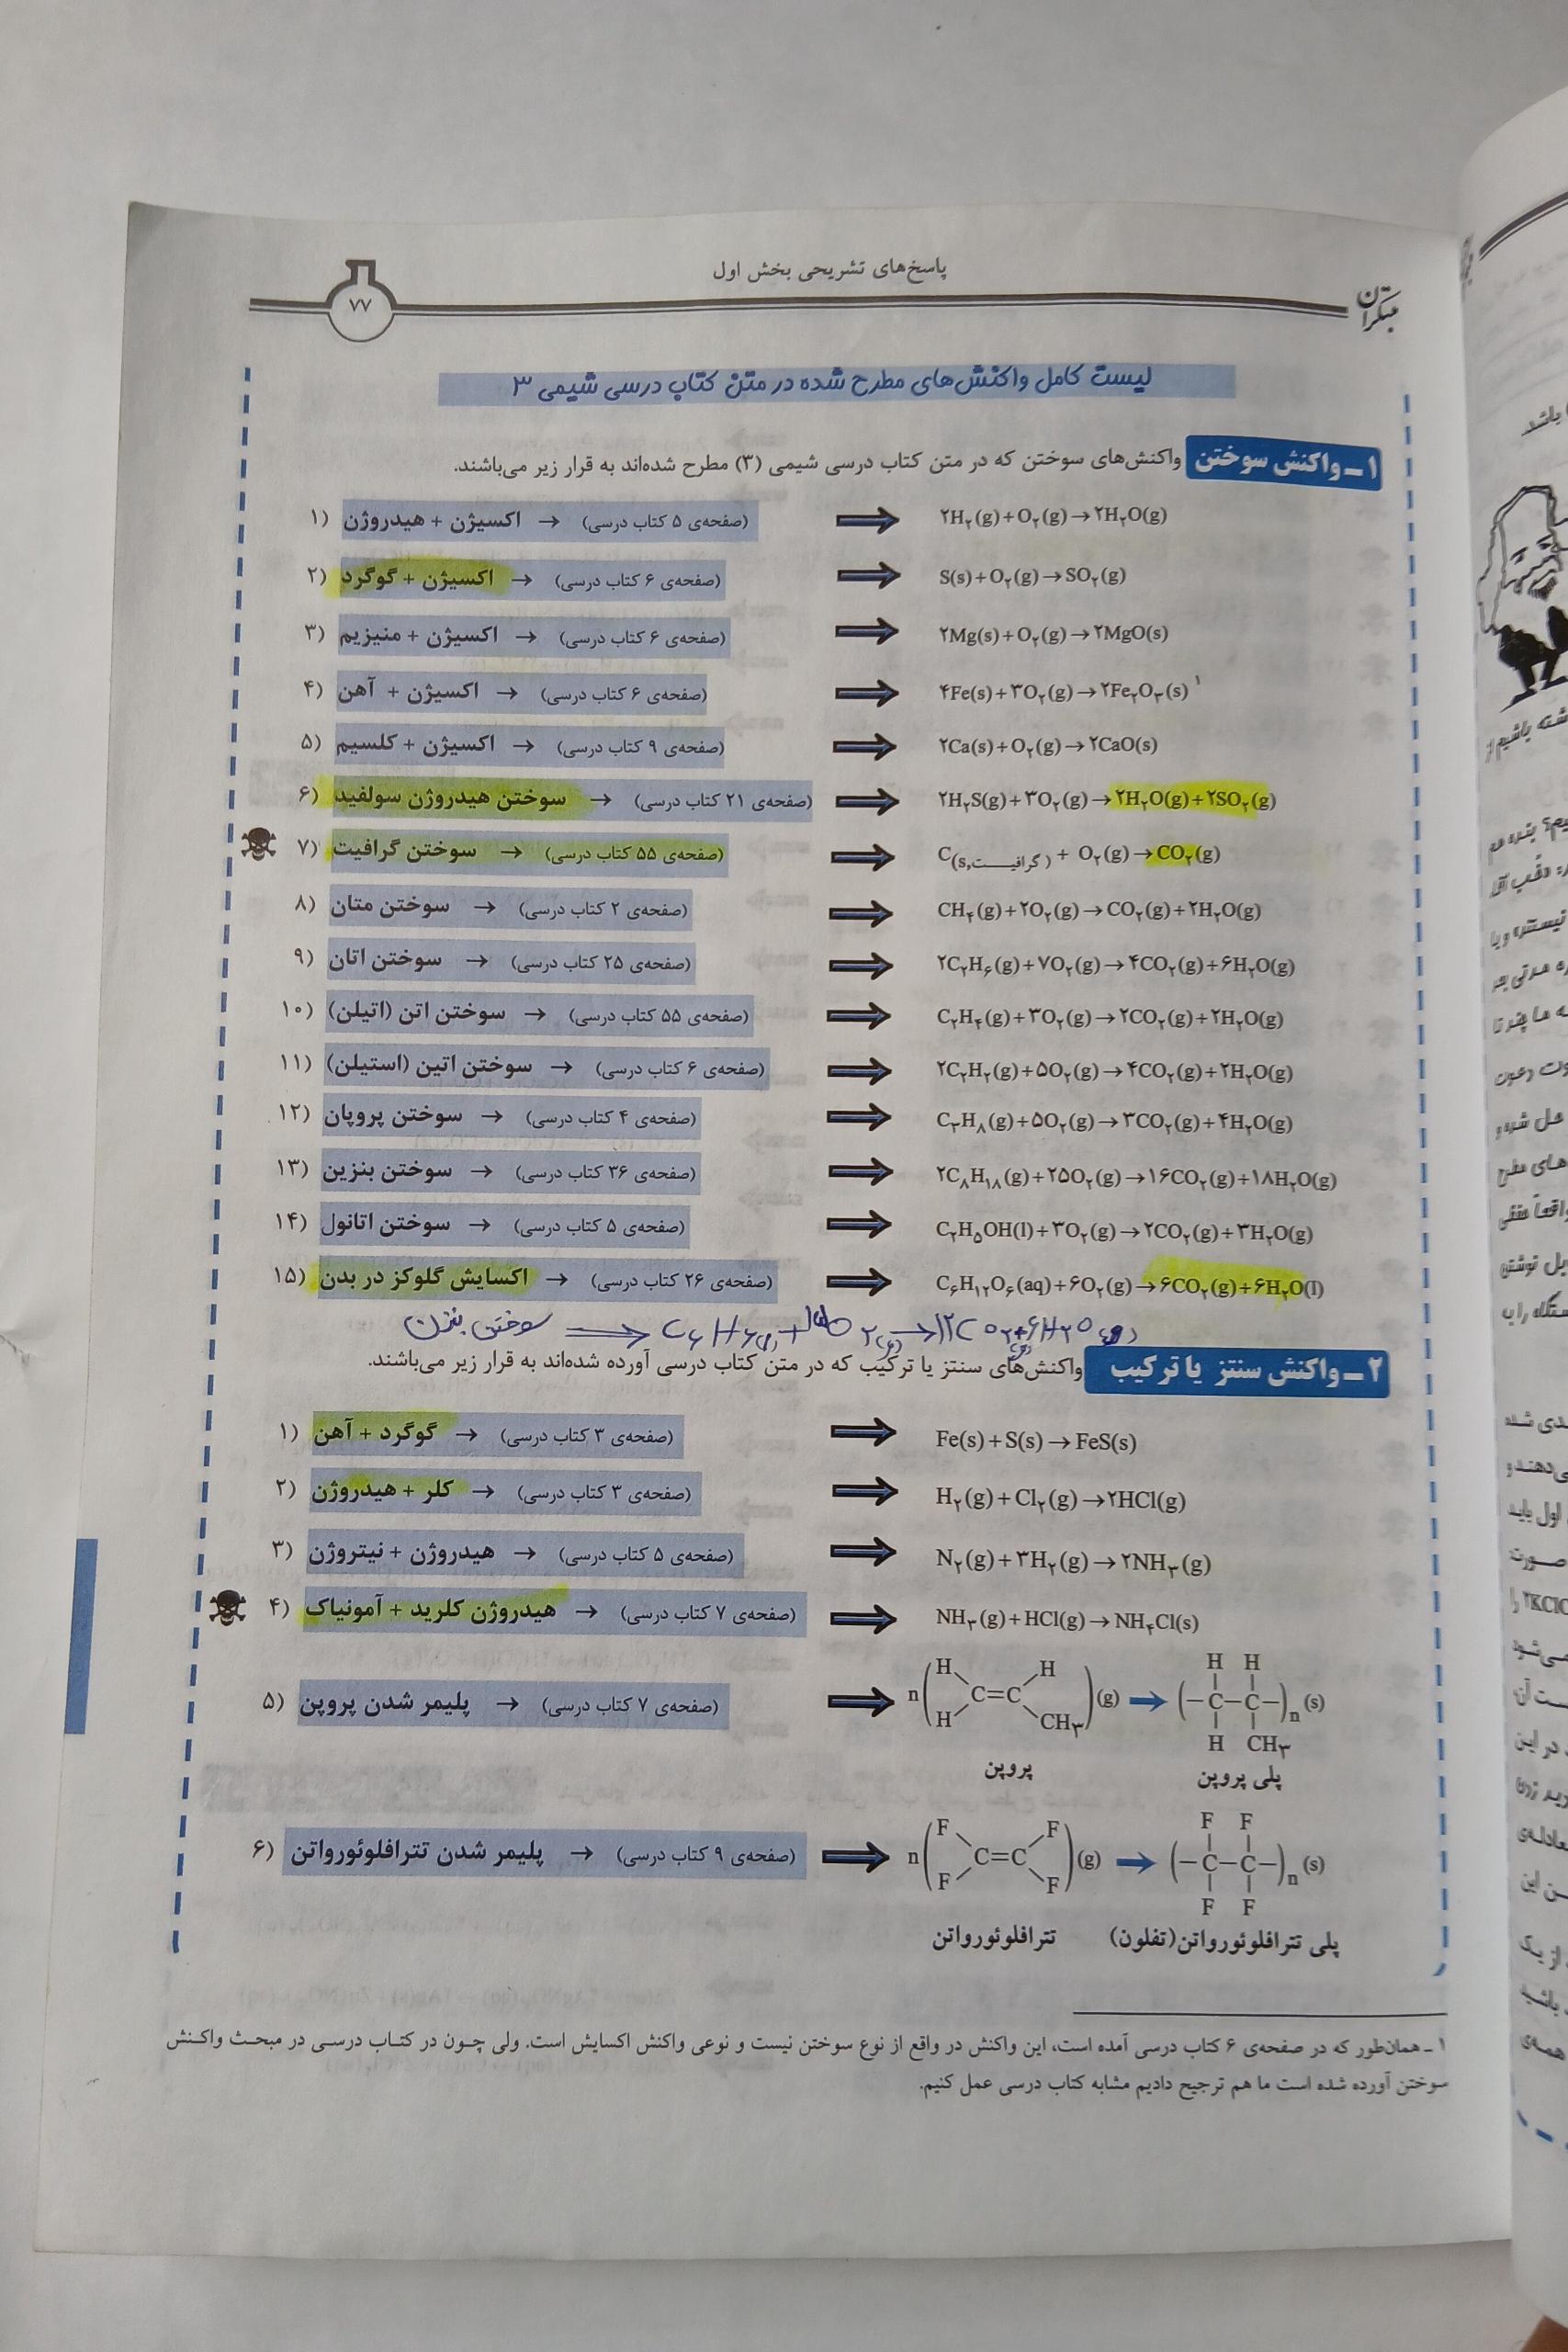 پاسخ‌های تشریحی بخش اول
مبتکران
۷۷
لیست کامل واکنش‌های مطرح شده در متن کتاب درسی شیمی ۳
۱ــ واکنش سوختن واکنش‌های سوختن که در متن کتاب درسی شیمی (۳) مطرح شده‌اند به قرار زیر می‌باشند.
۱) اکسیژن + هیدروژن → (صفحه‌ی ۵ کتاب درسی) ⇒ ۲H₂(g)+O₂(g)→۲H₂O(g)
۲) اکسیژن + گوگرد → (صفحه‌ی ۶ کتاب درسی) ⇒ S(s)+O₂(g)→SO₂(g)
۳) اکسیژن + منیزیم → (صفحه‌ی ۶ کتاب درسی) ⇒ ۲Mg(s)+O₂(g)→۲MgO(s)
۴) اکسیژن + آهن → (صفحه‌ی ۶ کتاب درسی) ⇒ ۴Fe(s)+۳O₂(g)→۲Fe₂O₃(s) ۱
۵) اکسیژن + کلسیم → (صفحه‌ی ۹ کتاب درسی) ⇒ ۲Ca(s)+O₂(g)→۲CaO(s)
۶) سوختن هیدروژن سولفید → (صفحه‌ی ۲۱ کتاب درسی) ⇒ ۲H₂S(g)+۳O₂(g)→۲H₂O(g)+۲SO₂(g)
۷) سوختن گرافیت → (صفحه‌ی ۵۵ کتاب درسی) ⇒ C(s,گرافیت) + O₂(g)→CO₂(g)
۸) سوختن متان → (صفحه‌ی ۲ کتاب درسی) ⇒ CH₄(g)+۲O₂(g)→CO₂(g)+۲H₂O(g)
۹) سوختن اتان → (صفحه‌ی ۲۵ کتاب درسی) ⇒ ۲C₂H₆(g)+۷O₂(g)→۴CO₂(g)+۶H₂O(g)
۱۰) سوختن اتن (اتیلن) → (صفحه‌ی ۵۵ کتاب درسی) ⇒ C₂H₄(g)+۳O₂(g)→۲CO₂(g)+۲H₂O(g)
۱۱) سوختن اتین (استیلن) → (صفحه‌ی ۶ کتاب درسی) ⇒ ۲C₂H₂(g)+۵O₂(g)→۴CO₂(g)+۲H₂O(g)
۱۲) سوختن پروپان → (صفحه‌ی ۴ کتاب درسی) ⇒ C₃H₈(g)+۵O₂(g)→۳CO₂(g)+۴H₂O(g)
۱۳) سوختن بنزین → (صفحه‌ی ۳۶ کتاب درسی) ⇒ ۲C₈H₁₈(g)+۲۵O₂(g)→۱۶CO₂(g)+۱۸H₂O(g)
۱۴) سوختن اتانول → (صفحه‌ی ۵ کتاب درسی) ⇒ C₂H₅OH(l)+۳O₂(g)→۲CO₂(g)+۳H₂O(g)
۱۵) اکسایش گلوکز در بدن → (صفحه‌ی ۲۶ کتاب درسی) ⇒ C₆H₁₂O₆(aq)+۶O₂(g)→۶CO₂(g)+۶H₂O(l)
سوختن بنزن ⇒ C₆H₆(g)+۱۵O₂(g)→۱۲CO₂(g)+۶H₂O(g)
۲ــ واکنش سنتز یا ترکیب واکنش‌های سنتز یا ترکیب که در متن کتاب درسی آورده شده‌اند به قرار زیر می‌باشند.
۱) گوگرد + آهن → (صفحه‌ی ۳ کتاب درسی) ⇒ Fe(s)+S(s)→FeS(s)
۲) کلر + هیدروژن → (صفحه‌ی ۳ کتاب درسی) ⇒ H₂(g)+Cl₂(g)→۲HCl(g)
۳) هیدروژن + نیتروژن → (صفحه‌ی ۵ کتاب درسی) ⇒ N₂(g)+۳H₂(g)→۲NH₃(g)
۴) هیدروژن کلرید + آمونیاک → (صفحه‌ی ۷ کتاب درسی) ⇒ NH₃(g)+HCl(g)→NH₄Cl(s)
H H H H
۵) پلیمر شدن پروپن → (صفحه‌ی ۷ کتاب درسی) ⇒ n( C=C )(g) → (–C–C–)n (s)
H CH₃ H CH₃
پروپن پلی پروپن
F F F F
۶) پلیمر شدن تترافلوئورواتن → (صفحه‌ی ۹ کتاب درسی) ⇒ n( C=C )(g) → (–C–C–)n (s)
F F F F
تترافلوئورواتن پلی تترافلوئورواتن(تفلون)
۱ـ همان‌طور که در صفحه‌ی ۶ کتاب درسی آمده است، این واکنش در واقع از نوع سوختن نیست و نوعی واکنش اکسایش است. ولی چون در کتاب درسی در مبحث واکنش
سوختن آورده شده است ما هم ترجیح دادیم مشابه کتاب درسی عمل کنیم.